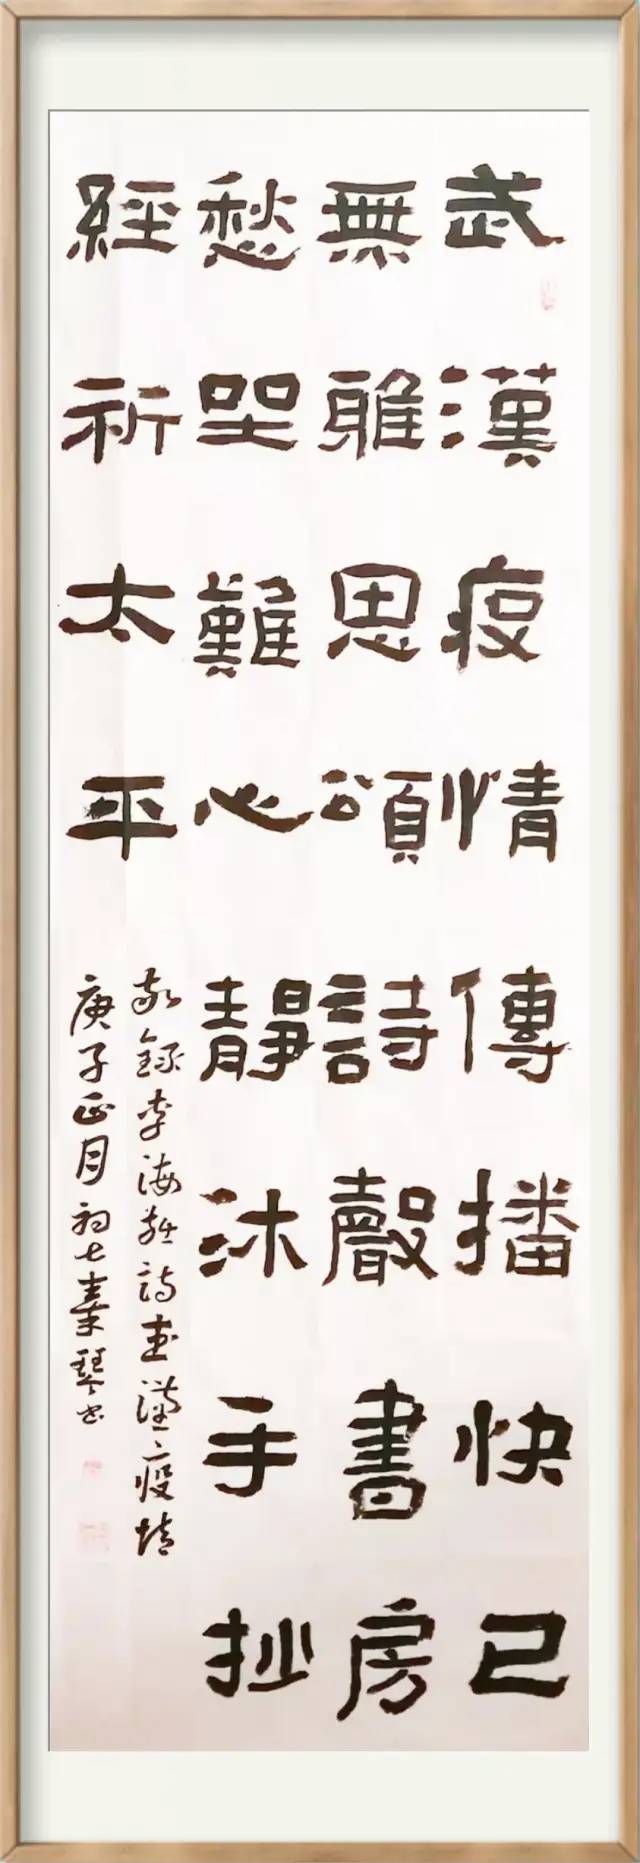 武漢疫情傳播快已
無雅思頌詩聲書房
愁坐難心靜沐手抄
經祈太平
敬錄李海詩武漢疫情
庚子正月初七秦琴书